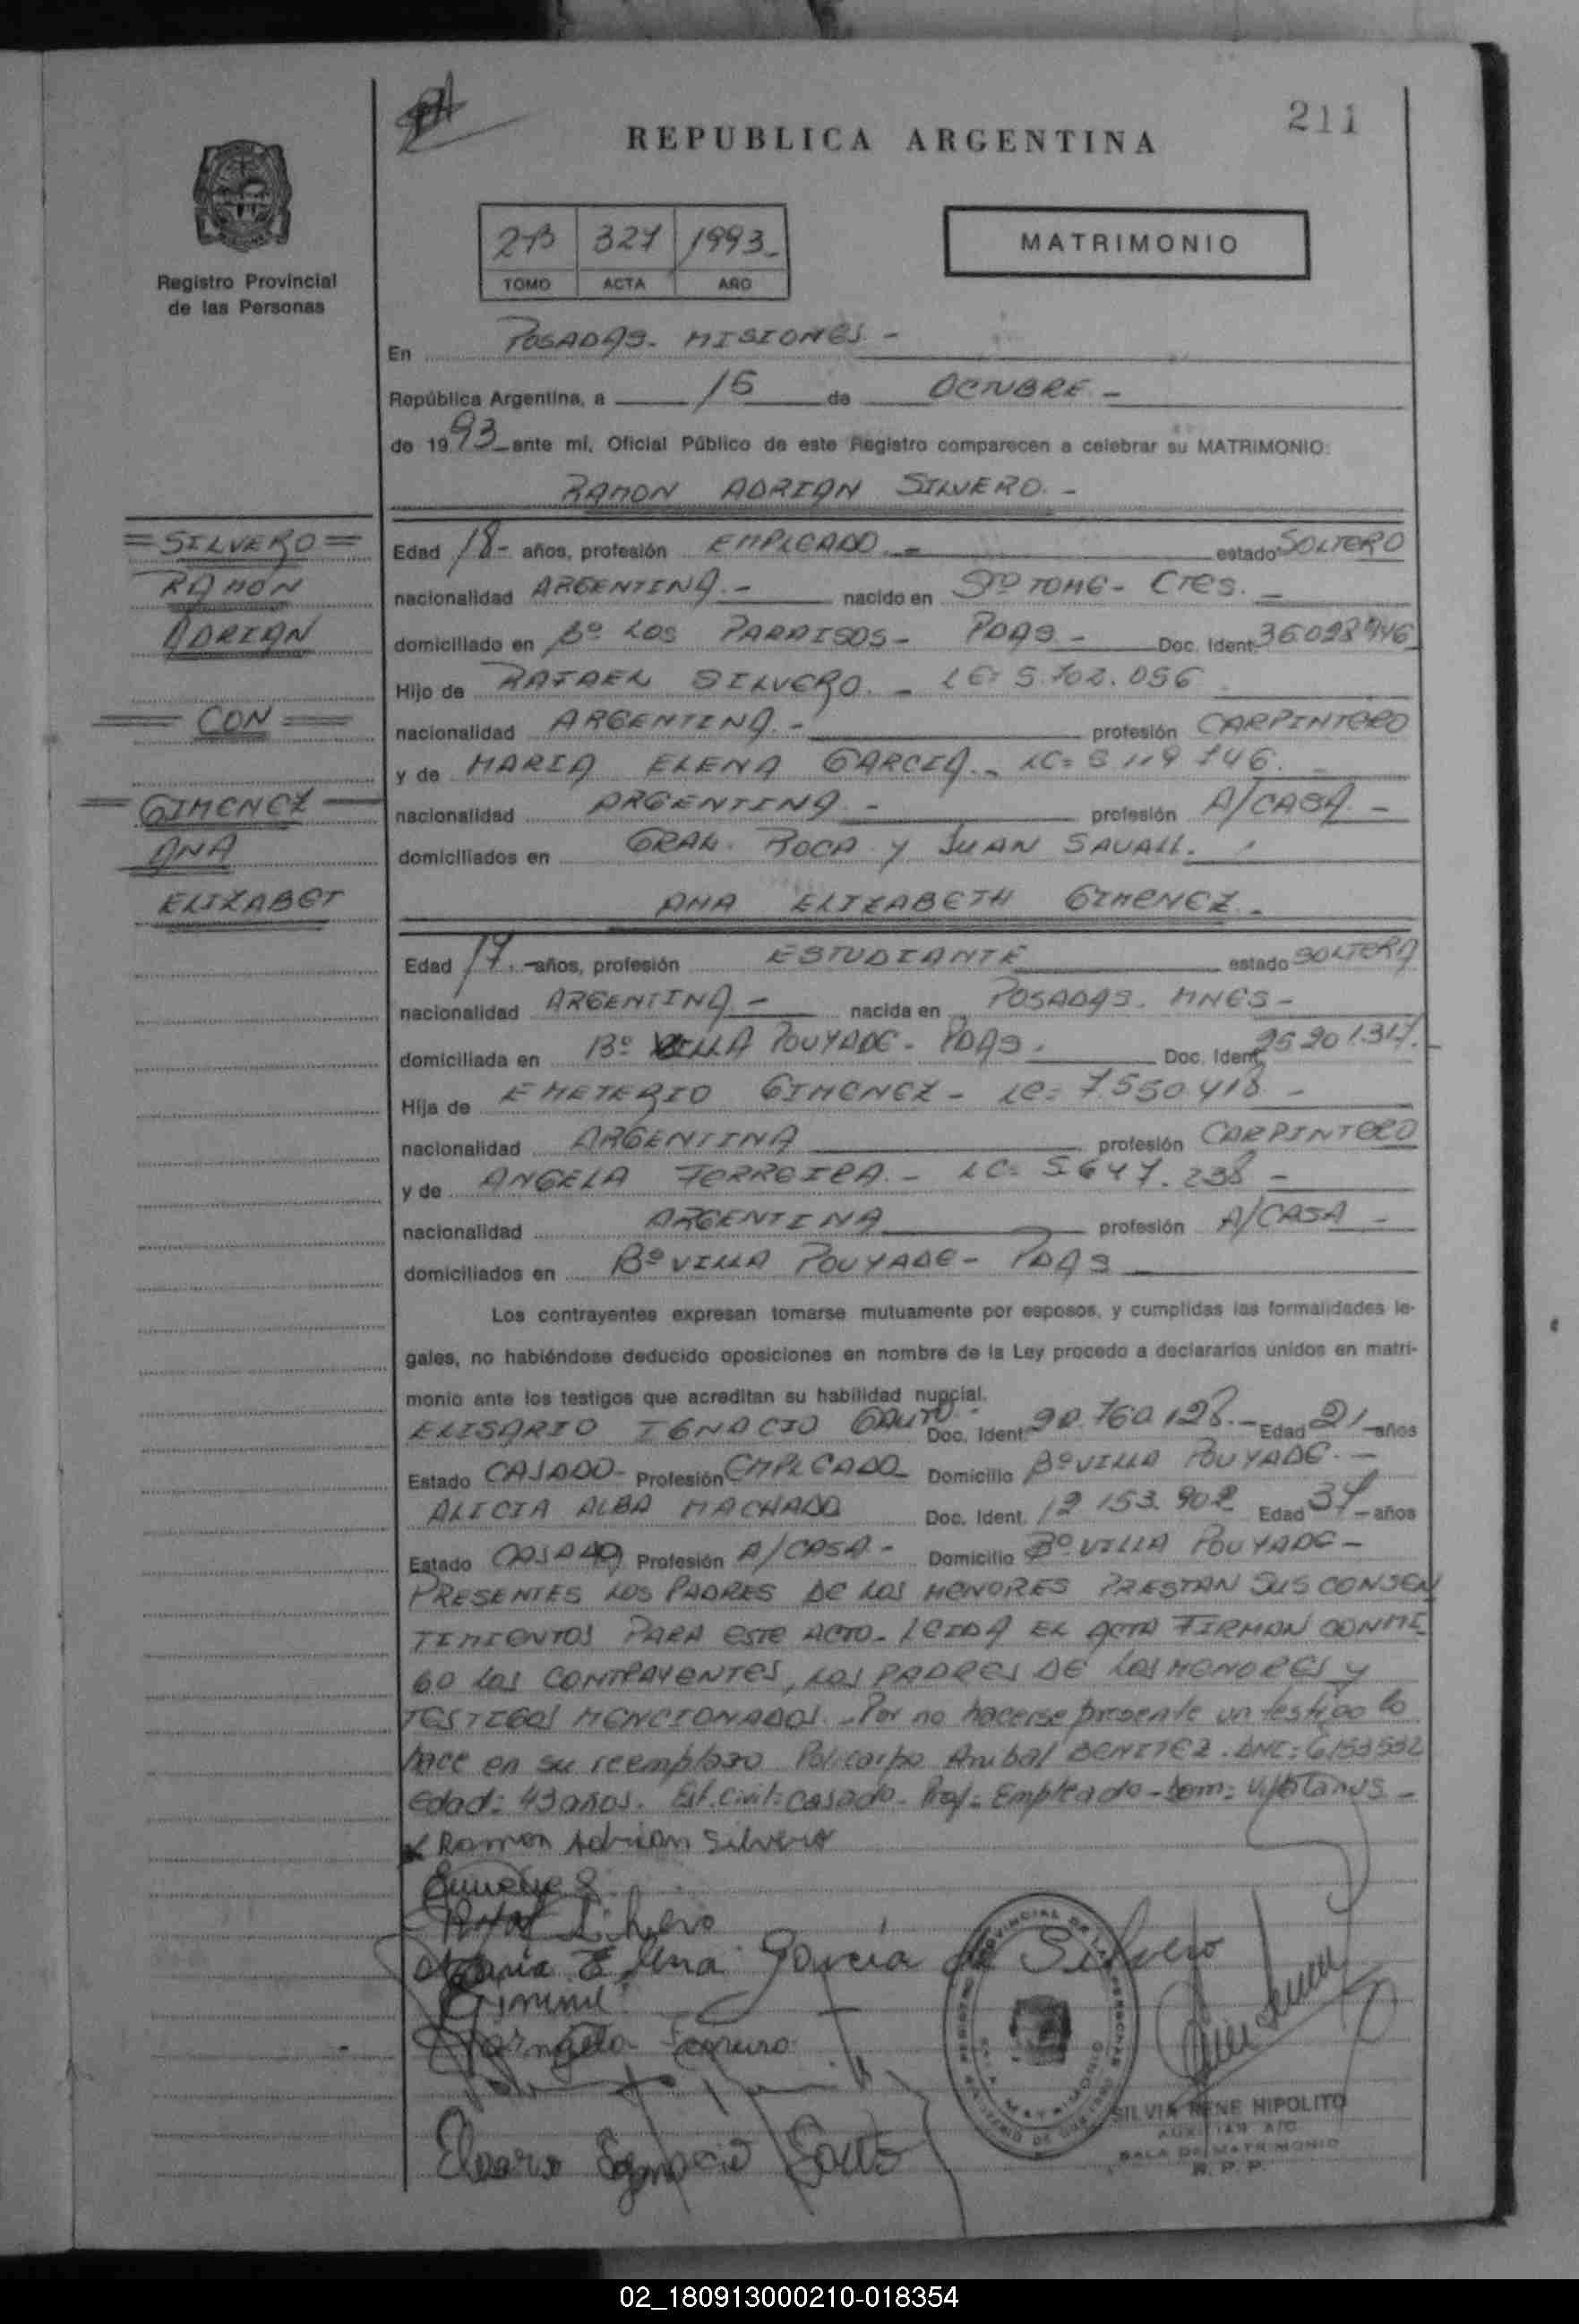 211
REPUBLICA ARGENTINA
Registro Provincial
de las Personas
2-B 327 1993-
TOMO ACTA AÑO
MATRIMONIO
En POSADAS - MISIONES -
República Argentina, a 15 de OCTUBRE -
de 1993 ante mi, Oficial Público de este Registro comparecen a celebrar su MATRIMONIO:
RAMON ADRIAN SILVERO. -
= SILVERO =
RAMON
ADRIAN
= CON =
= GIMENEZ =
ANA
ELIZABET
Edad 18 - años, profesión EMPLEADO. - estado SOLTERO
nacionalidad ARGENTINA. - nacido en STO TOME - CTES. -
domiciliado en Bº LOS PARAISOS - PDAS - Doc. Ident.
Hijo de RAFAEL SILVERO. - LE: 5.702.056
nacionalidad ARGENTINA. - profesión CARPINTERO
y de MARIA ELENA GARCIA. - LC=
nacionalidad ARGENTINA. - profesión A/CASA -
domiciliados en GRAL. ROCA y JUAN SAVALL.
ANA ELIZABETH GIMENEZ. -
Edad 17. - años, profesión ESTUDIANTE estado SOLTERA
nacionalidad ARGENTINA - nacida en POSADAS. MNES -
domiciliada en Bº VILLA POUYADE - PDAS. Doc. Ident. 25 201.317.
Hija de EMETERIO GIMENEZ - LE= 7.550.418 -
nacionalidad ARGENTINA profesión CARPINTERO
y de ANGELA FERREIRA. - LC= 5647.238 -
nacionalidad ARGENTINA profesión A/CASA -
domiciliados en Bº VILLA POUYADE - PDAS
Los contrayentes expresan tomarse mutuamente por esposos, y cumplidas las formalidades le-
gales, no habiéndose deducido oposiciones en nombre de la Ley procedo a declararlos unidos en matri-
monio ante los testigos que acreditan su habilidad nupcial.
ELISARIO IGNACIO GAUTO. - Doc. Ident. 90.760.128. - Edad 21 años
Estado CASADO - Profesión EMPLEADO Domicilio Bº VILLA POUYADE. -
ALICIA ALBA MACHADO Doc. Ident. 12 153.902 Edad 37 - años
Estado CASADA Profesión A/CASA - Domicilio Bº VILLA POUYADE -
PRESENTES LOS PADRES DE LOS MENORES PRESTAN SUS CONSEN
TIMIENTOS PARA ESTE ACTO - LEIDA EL ACTA FIRMAN CONMI
GO LOS CONTRAYENTES, LOS PADRES DE LOS MENORES y
TESTIGOS MENCIONADOS. - Por no hacerse presente un testigo lo
hace en su reemplazo Policarpo Anibal BENITEZ. DNI: 6153532
Edad: 43 años. Est. Civil: casado - Prof: Empleado - Dom: Villa Lanus -
Ramon Adrian Silvero
Silvero
Maria Elena Garcia de Silvero
Angela Ferreira
Ignacio Gauto
SILVIA RENE HIPOLITO
AUXILIAR A/C
SALA DE MATRIMONIO
R. P. P.
02_180913000210-018354